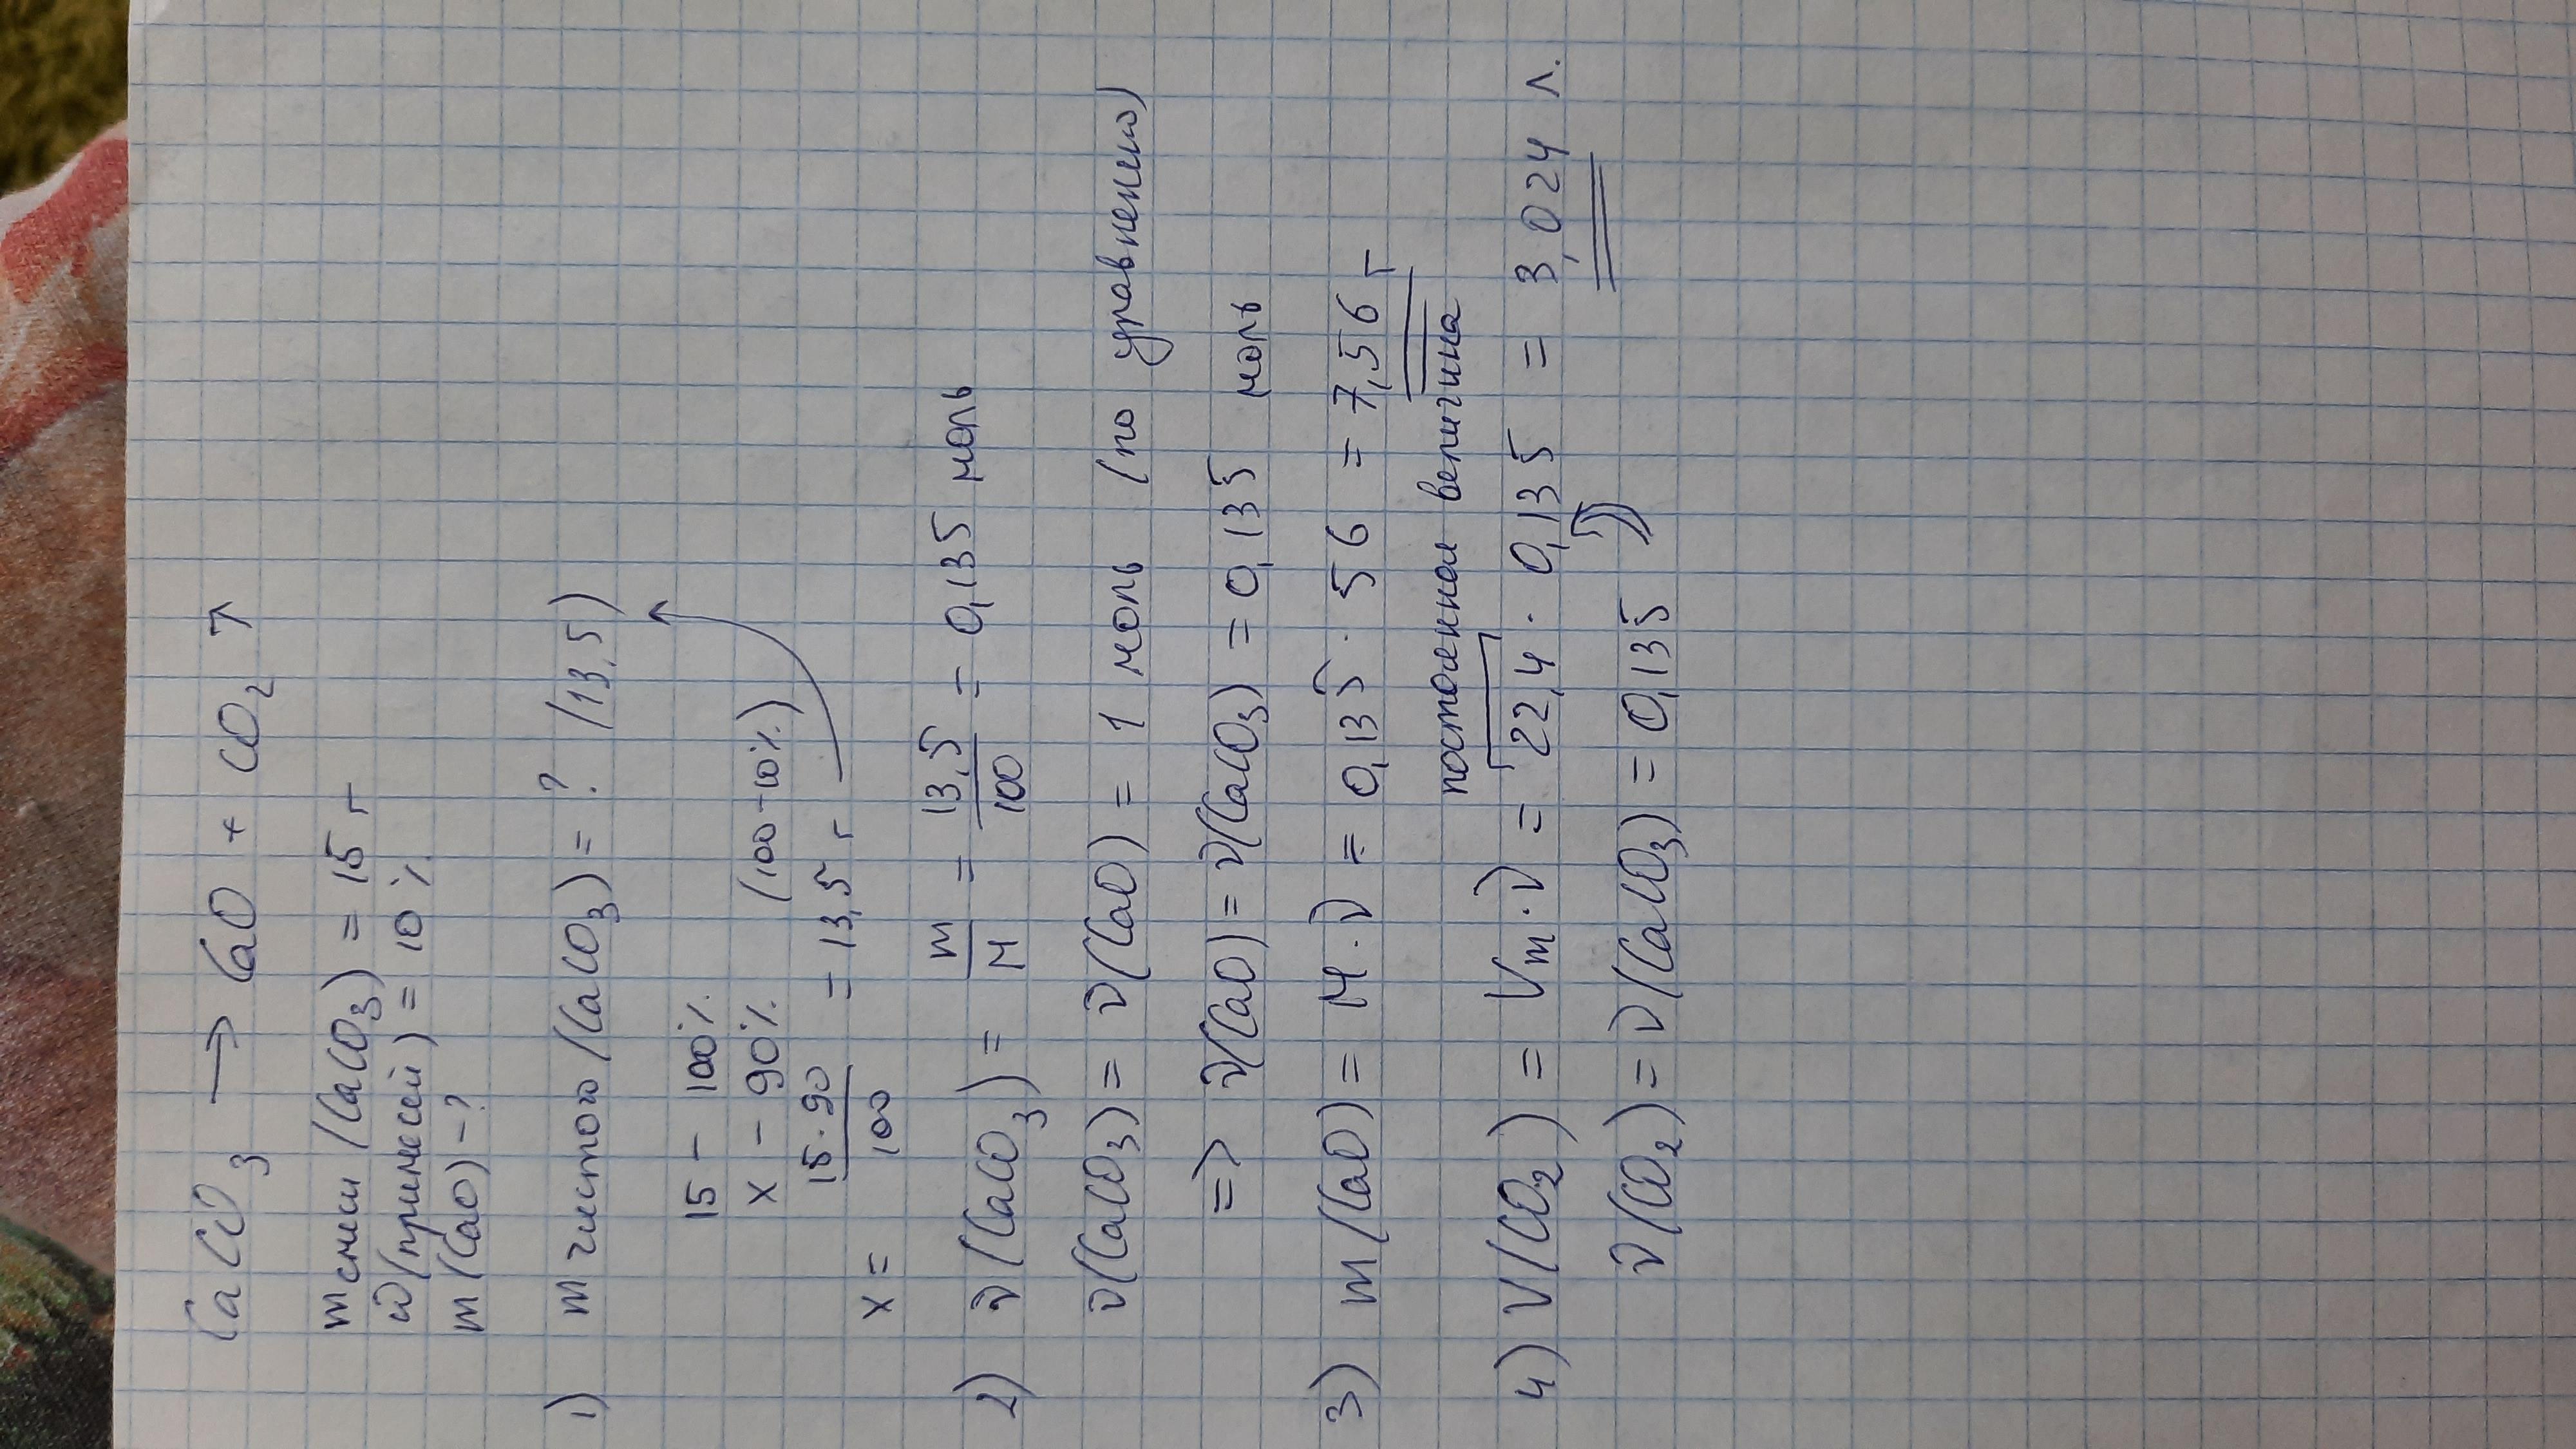 CaCO3 → CaO + CO2 ↑
m смеси (CaCO3) = 15 г
ω (примесей) = 10 %
m (CaO) - ?
1) m чистого (CaCO3) = ? (13,5)
15 - 100%
x - 90% (100-10%)
x = 15·90/100 = 13,5 г
2) ν (CaCO3) = m/M = 13,5/100 = 0,135 моль
ν(CaCO3) = ν(CaO) = 1 моль (по уравнению)
=> ν(CaO) = ν(CaCO3) = 0,135 моль
3) m (CaO) = M·ν = 0,135 · 56 = 7,56 г
постоянная величина
4) V(CO2) = Vm·ν = 22,4 · 0,135 = 3,024 л.
ν(CO2) = ν(CaCO3) = 0,135